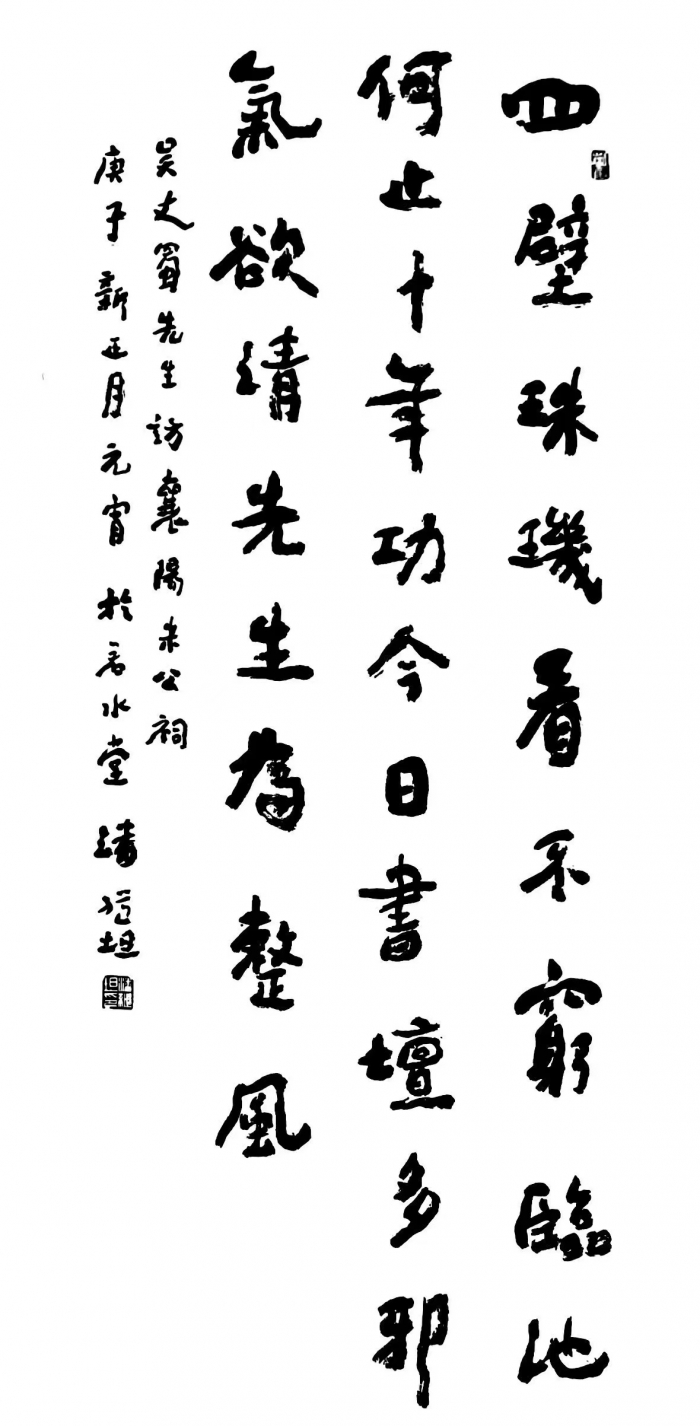 四壁珠璣看不窮臨池
何止十年功今日書壇多邪
氣欲請先生為整風
吳丈蜀先生訪襄陽米公祠
庚子新正月元宵於水堂 潘坦